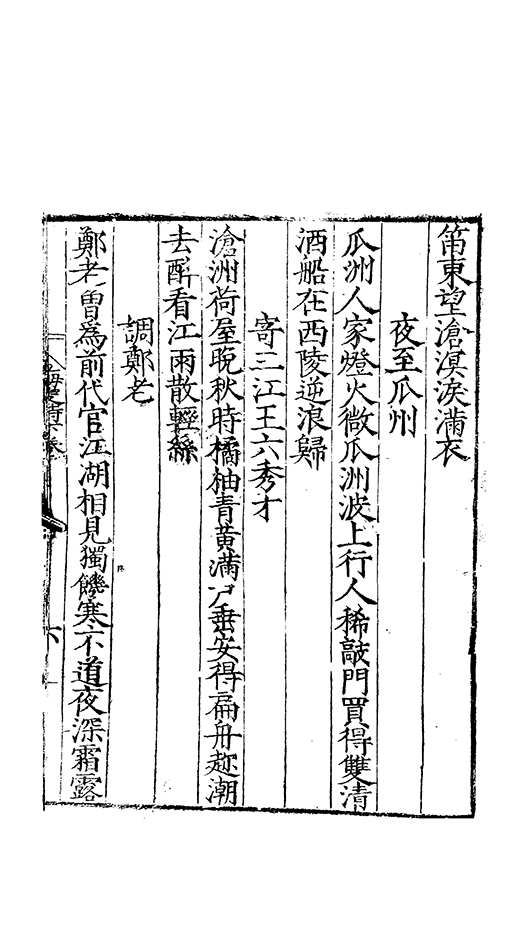 笛東望滄溟淚滿衣
夜至瓜州
瓜洲人家燈火微瓜洲波上行人稀敲門買得雙清
酒船在西陵逆浪歸
寄三江王六秀才
滄洲荷屋晚秋時橘柚青黃滿戶垂安得扁舟趂潮
去醉看江雨散輕絲
調鄭老
鄭老曽為前代官江湖相見獨饑寒不道夜深霜露
六